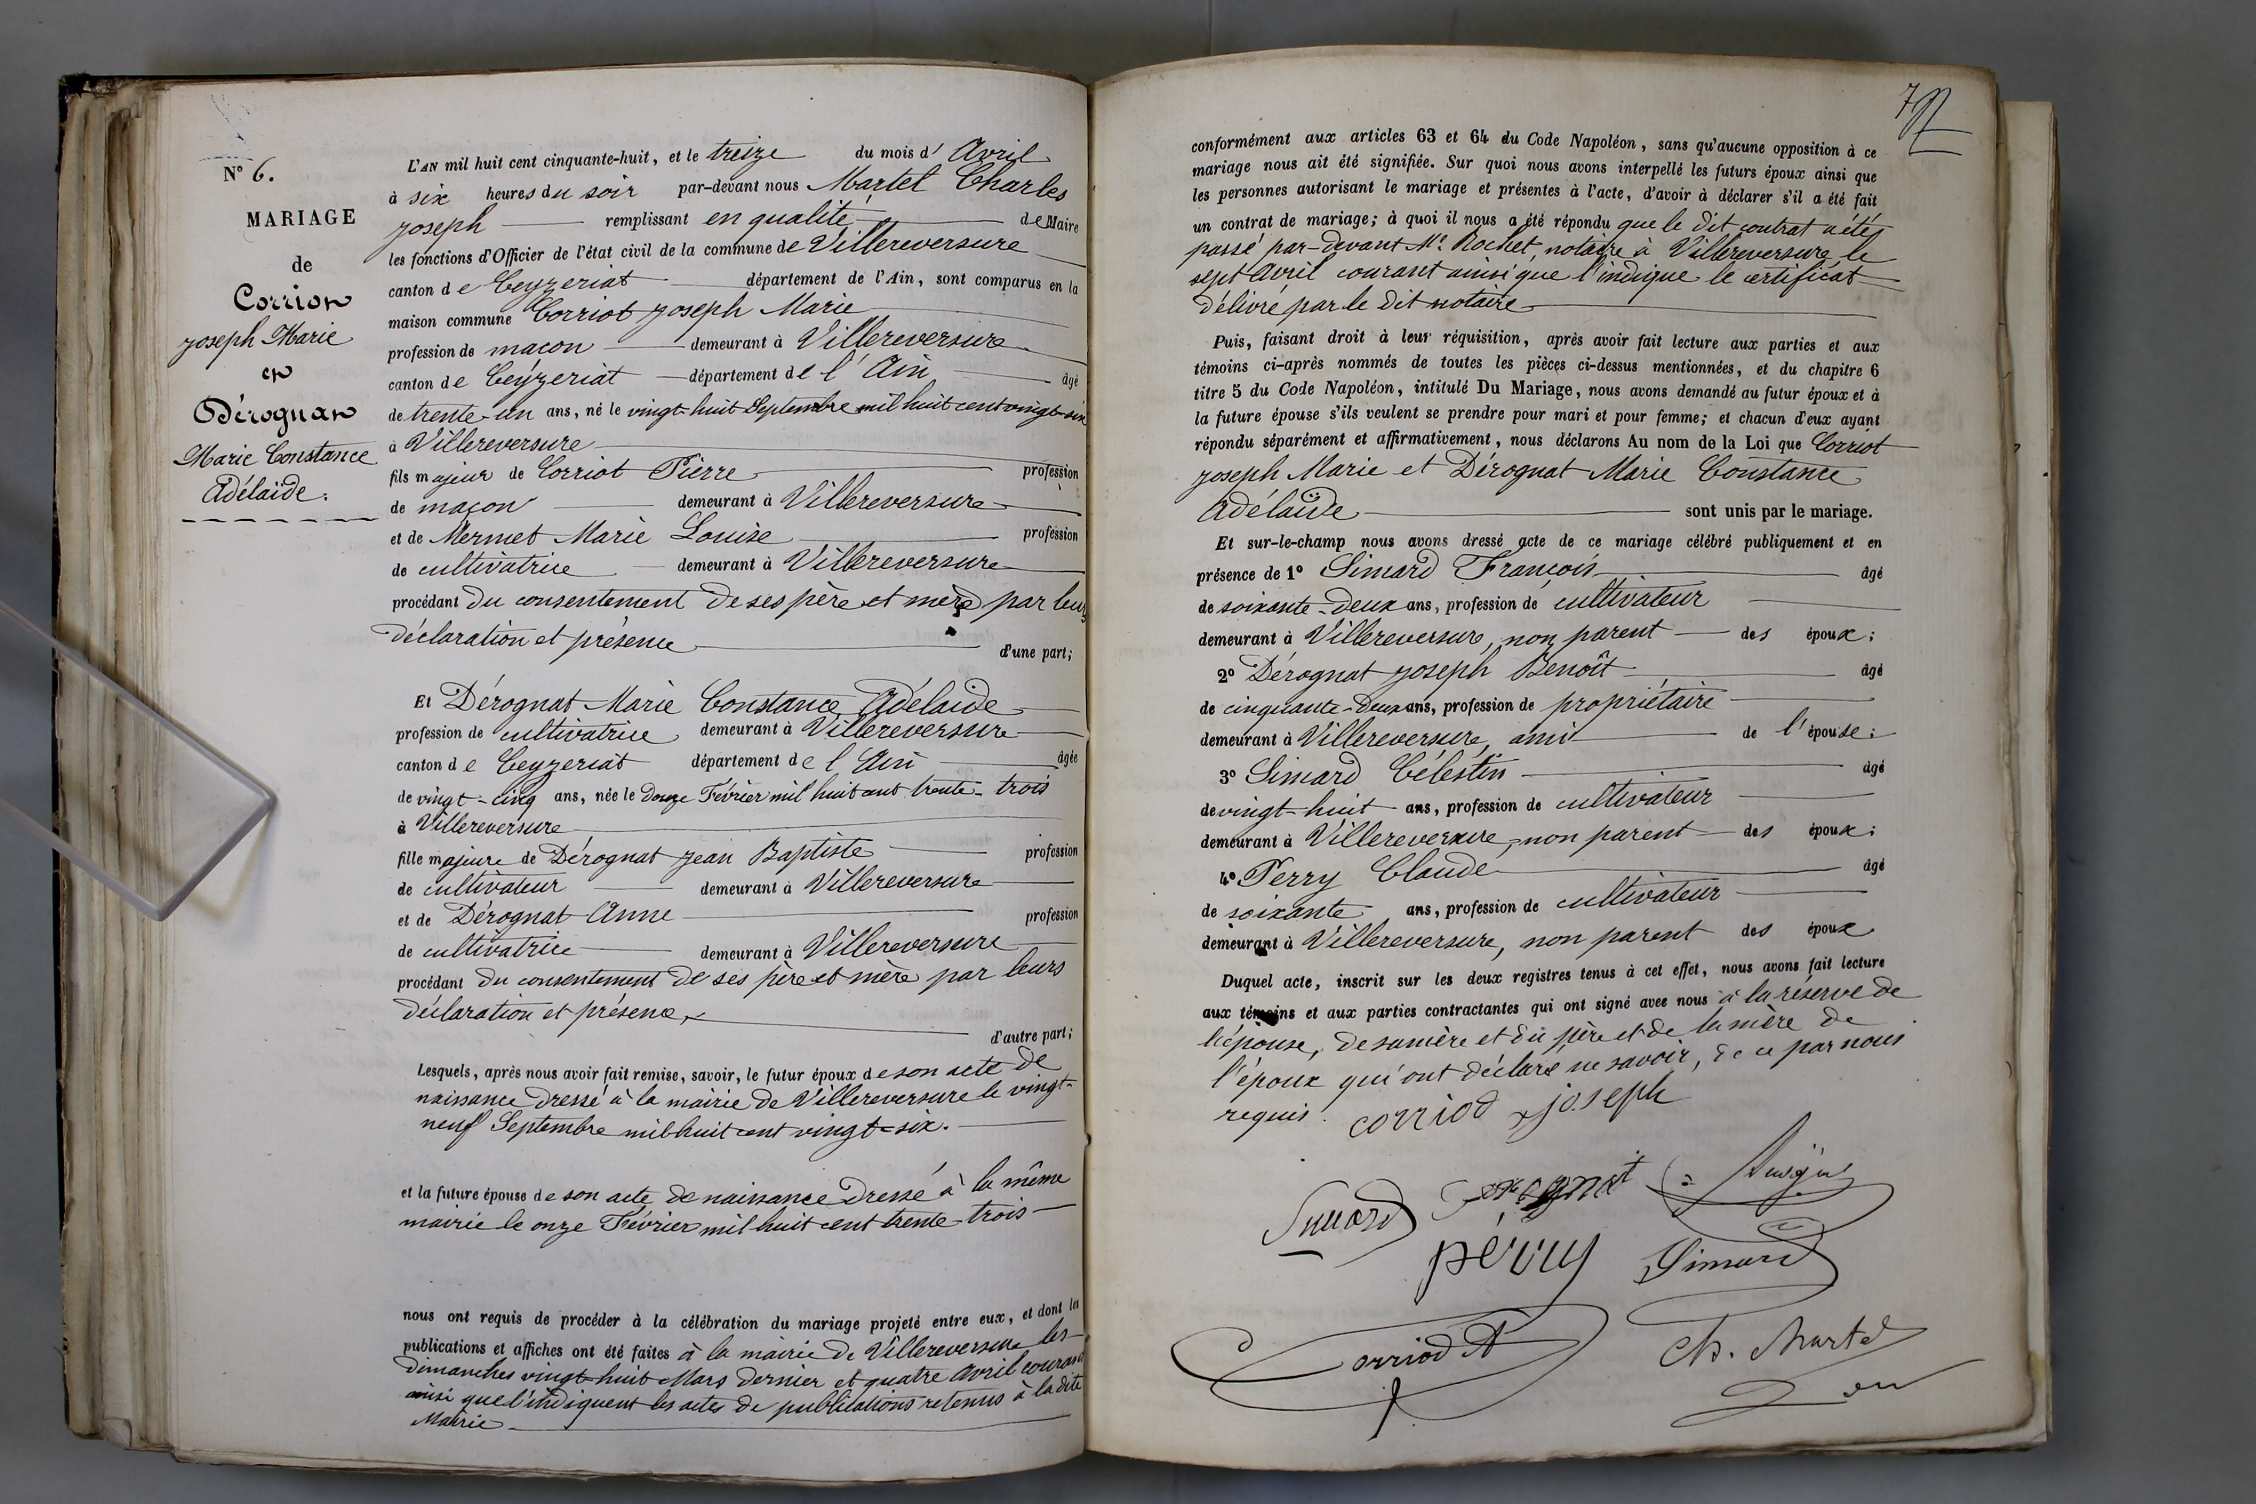 N° 6.
MARIAGE
de
Corriot
Joseph Marie
et
Dérognat
Marie Constance
Adélaide.
L'AN mil huit cent cinquante-huit, et le treize du mois d' Avril
à six heures du soir par-devant nous Martel Charles
Joseph remplissant en qualité de Maire
les fonctions d'Officier de l'état civil de la commune de Villereversure
canton de Ceyzeriat département de l'Ain, sont comparus en la
maison commune Corriot Joseph Marie
profession de macon demeurant à Villereversure
canton de Ceyzeriat département de l'Ain âgé
de trente-un ans, né le vingt-huit Septembre mil huit cent vingt-six
à Villereversure
fils majeur de Corriot Pierre profession
de maçon demeurant à Villereversure
et de Mermet Marie Louise profession
de cultivatrice demeurant à Villereversure
procédant du consentement de ses père et mère par leurs
déclaration et présence d'une part;
Et Dérognat Marie Constance Adélaide
profession de cultivatrice demeurant à Villereversure
canton de Ceyzeriat département de l'Ain âgée
de vingt-cinq ans, née le Février mil huit cent trente-trois
à Villereversure
fille majeure de Dérognat Jean Baptiste profession
de cultivateur demeurant à Villereversure
et de Dérognat Anne profession
de cultivatrice demeurant à Villereversure
procédant du consentement de ses père et mère par leurs
déclaration et présence, d'autre part;
Lesquels, après nous avoir fait remise, savoir, le futur époux de son acte de
naissance dressé à la mairie de Villereversure le vingt-
neuf Septembre mil huit cent vingt-six.
et la future épouse de son acte de naissance dressé à la même
mairie le onze Février mil huit cent trente-trois
nous ont requis de procéder à la célébration du mariage projeté entre eux, et dont les
publications et affiches ont été faites à la mairie de Villereversure les
dimanches vingt-huit Mars dernier et quatre Avril courant
ainsi que l'indiquent les actes de publications retenus à la dite
Mairie
conformément aux articles 63 et 64 du Code Napoléon, sans qu'aucune opposition à ce
mariage nous ait été signifiée. Sur quoi nous avons interpellé les futurs époux ainsi que
les personnes autorisant le mariage et présentes à l'acte, d'avoir à déclarer s'il a été fait
un contrat de mariage; à quoi il nous a été répondu que le dit contrat a étés
passé par-devant Me Rochet, notaire à Villereversure le
sept Avril courant ainsi que l'indique le certificat
délivré par le dit notaire
Puis, faisant droit à leur réquisition, après avoir fait lecture aux parties et aux
témoins ci-après nommés de toutes les pièces ci-dessus mentionnées, et du chapitre 6
titre 5 du Code Napoléon, intitulé Du Mariage, nous avons demandé au futur époux et à
la future épouse s'ils veulent se prendre pour mari et pour femme; et chacun d'eux ayant
répondu séparément et affirmativement, nous déclarons Au nom de la Loi que Corriot
Joseph Marie et Dérognat Marie Constance
Adélaïde sont unis par le mariage.
Et sur-le-champ nous avons dressé acte de ce mariage célébré publiquement et en
présence de 1° Simard François âgé
de soixante-deux ans, profession de cultivateur
demeurant à Villereversure, non parent des époux;
2° Dérognat Joseph Benoît âgé
de cinquante-deux ans, profession de propriétaire
demeurant à Villereversure, ami de l'épouse;
3° Simard Célestin âgé
de vingt-huit ans, profession de cultivateur
demeurant à Villereversure, non parent des époux;
4° Perry Claude âgé
de soixante ans, profession de cultivateur
demeurant à Villereversure, non parent des époux
Duquel acte, inscrit sur les deux registres tenus à cet effet, nous avons fait lecture
aux témoins et aux parties contractantes qui ont signé avec nous à la réserve de
l'épouse, de sa mère et du père et de la mère de
l'époux qui ont déclaré ne savoir, de ce par nous
requis. corriod joseph
Simard Derognat
péruy Simard
Corriod Ch. Martel